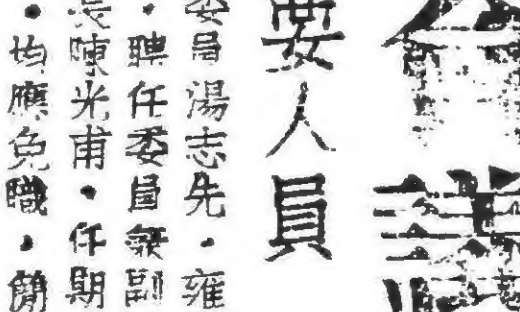 要人員
委員湯志先・雍
・聘任委員兼副
長陳光甫・任期
・均應免職・簡